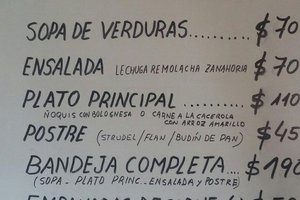 SOPA DE VERDURAS........ $70
ENSALADA LECHUGA REMOLACHA ZANAHORIA $70
PLATO PRINCIPAL ............ $110
ÑOQUIS CON BOLOGNESA O CARNE A LA CACEROLA
CON ARROZ AMARILLO
POSTRE (STRUDEL/FLAN/BUDÍN DE PAN) $45
BANDEJA COMPLETA.... $190
(SOPA - PLATO PRINC.. ENSALADA Y POSTRE)